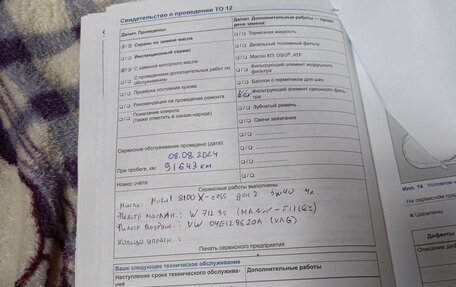 Свидетельство о проведении ТО 12
Да/нет. Проведены:
Сервис по замене масла
Инспекционный сервис
С заменой моторного масла
С проведением дополнительных работ по обслуживанию
Проверка состояния кузова
Рекомендация на проведение ремонта
Пожелание клиента
(также отметить в заказе-наряде)
Да/нет. Дополнительные работы — проведена замена:
Тормозная жидкость
Дизельный топливный фильтр
Масло КП: DSG®, ATF
Фильтрующий элемент воздушного фильтра
Баллон с герметиком для шин
Фильтрующий элемент салонного фильтра
Зубчатый ремень
Свечи зажигания
Сервисное обслуживание проведено (дата):
08.08.2024
При пробеге, км:
91647 км
Номер счёта:
Сервисные работы выполнены:
Масло: Motul 8100 X-cess gen2 5W40 4л.
Фильтр маслян.: W 712 95 (MANN-FILTER)
Фильтр воздуш.: VW 04E129620A (VAG)
Кольцо уплотн.:
Печать сервисного предприятия
Ваше следующее техническое обслуживание
Наступление срока технического обслуживания
Дополнительные работы
Илл. 14
Условное
На сервисном
Царапины
Дефекты
Описание